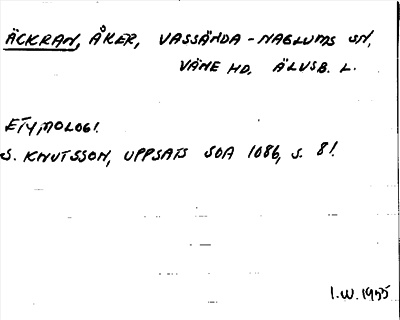 ÄCKRAN, ÅKER, VASSÄNDA-NAGLUMS SN,
VÄNE HD. ÄLVSB. L.
ETYMOLOGI.
S. KNUTSSON, UPPSATS SOA 1086, S. 8!
I.W. 1955